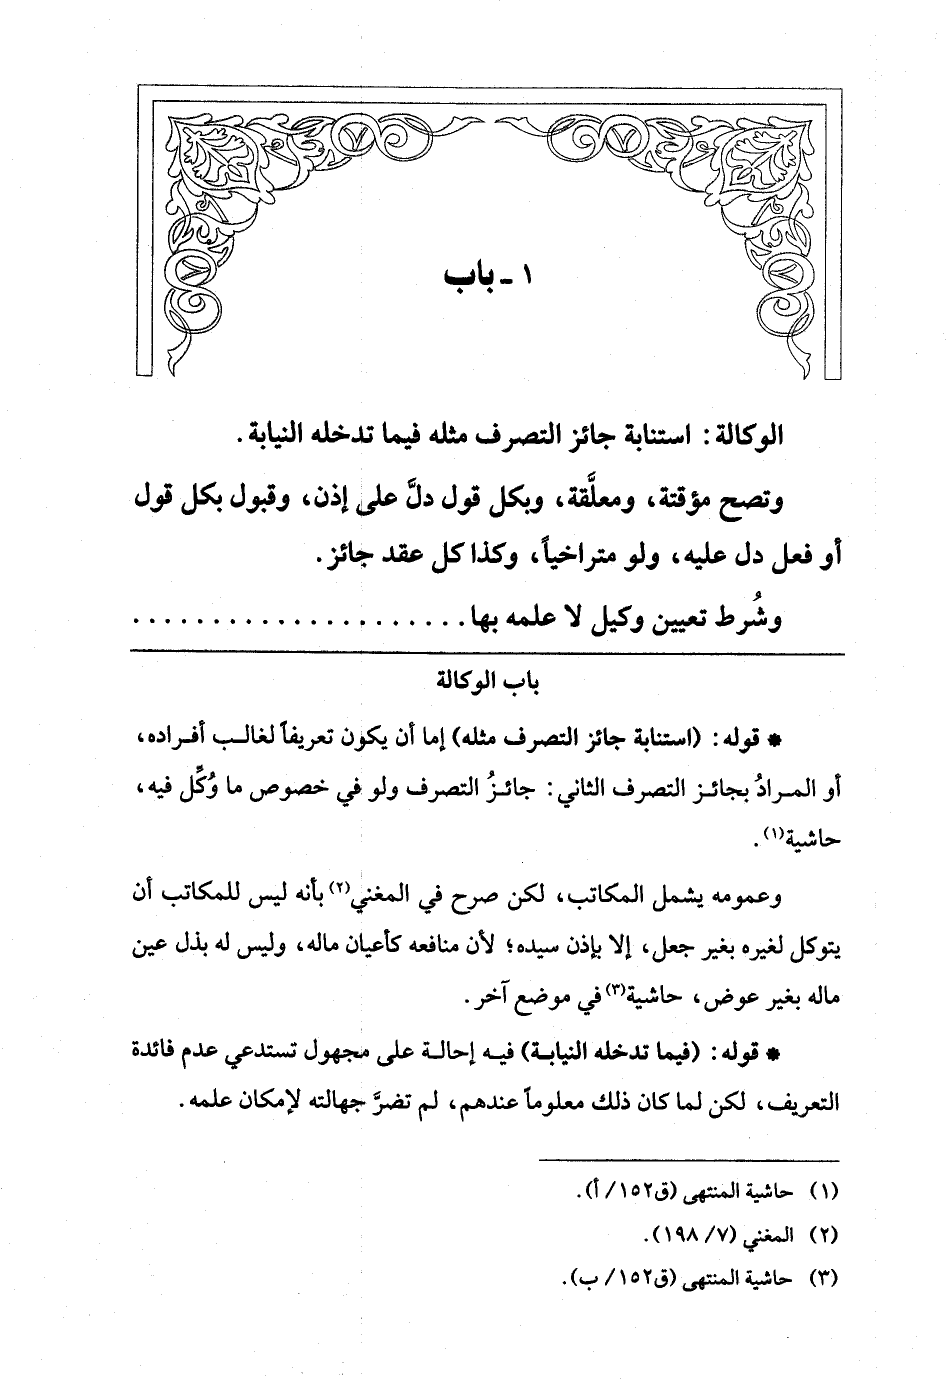 ١ - باب
الوكالة: استنابة جائز التصرف مثله فيما تدخله النيابة.
وتصح مؤقتة، ومعلَّقة، وبكل قول دلَّ على إذن، وقبول بكل قول
أو فعل دل عليه، ولو متراخياً، وكذا كل عقد جائز.
وشُرط تعيين وكيل لا علمه بها. . . . . . . . . . . . . . . . . . . . . .
باب الوكالة
* قوله: (استنابة جائز التصرف مثله) إما أن يكون تعريفاً لغالب أفراده،
أو المرادُ بجائز التصرف الثاني: جائزُ التصرف ولو في خصوص ما وُكِّل فيه،
حاشية(١).
وعمومه يشمل المكاتب، لكن صرح في المغني(٢) بأنه ليس للمكاتب أن
يتوكل لغيره بغير جعل، إلا بإذن سيده؛ لأن منافعه كأعيان ماله، وليس له بذل عين
ماله بغير عوض، حاشية(٣) في موضع آخر.
* قوله: (فيما تدخله النيابة) فيه إحالة على مجهول تستدعي عدم فائدة
التعريف، لكن لما كان ذلك معلوماً عندهم، لم تضرَّ جهالته لإمكان علمه.
(١) حاشية المنتهى (ق١٥٢/ أ).
(٢) المغني (٧/ ١٩٨).
(٣) حاشية المنتهى (ق١٥٢/ ب).